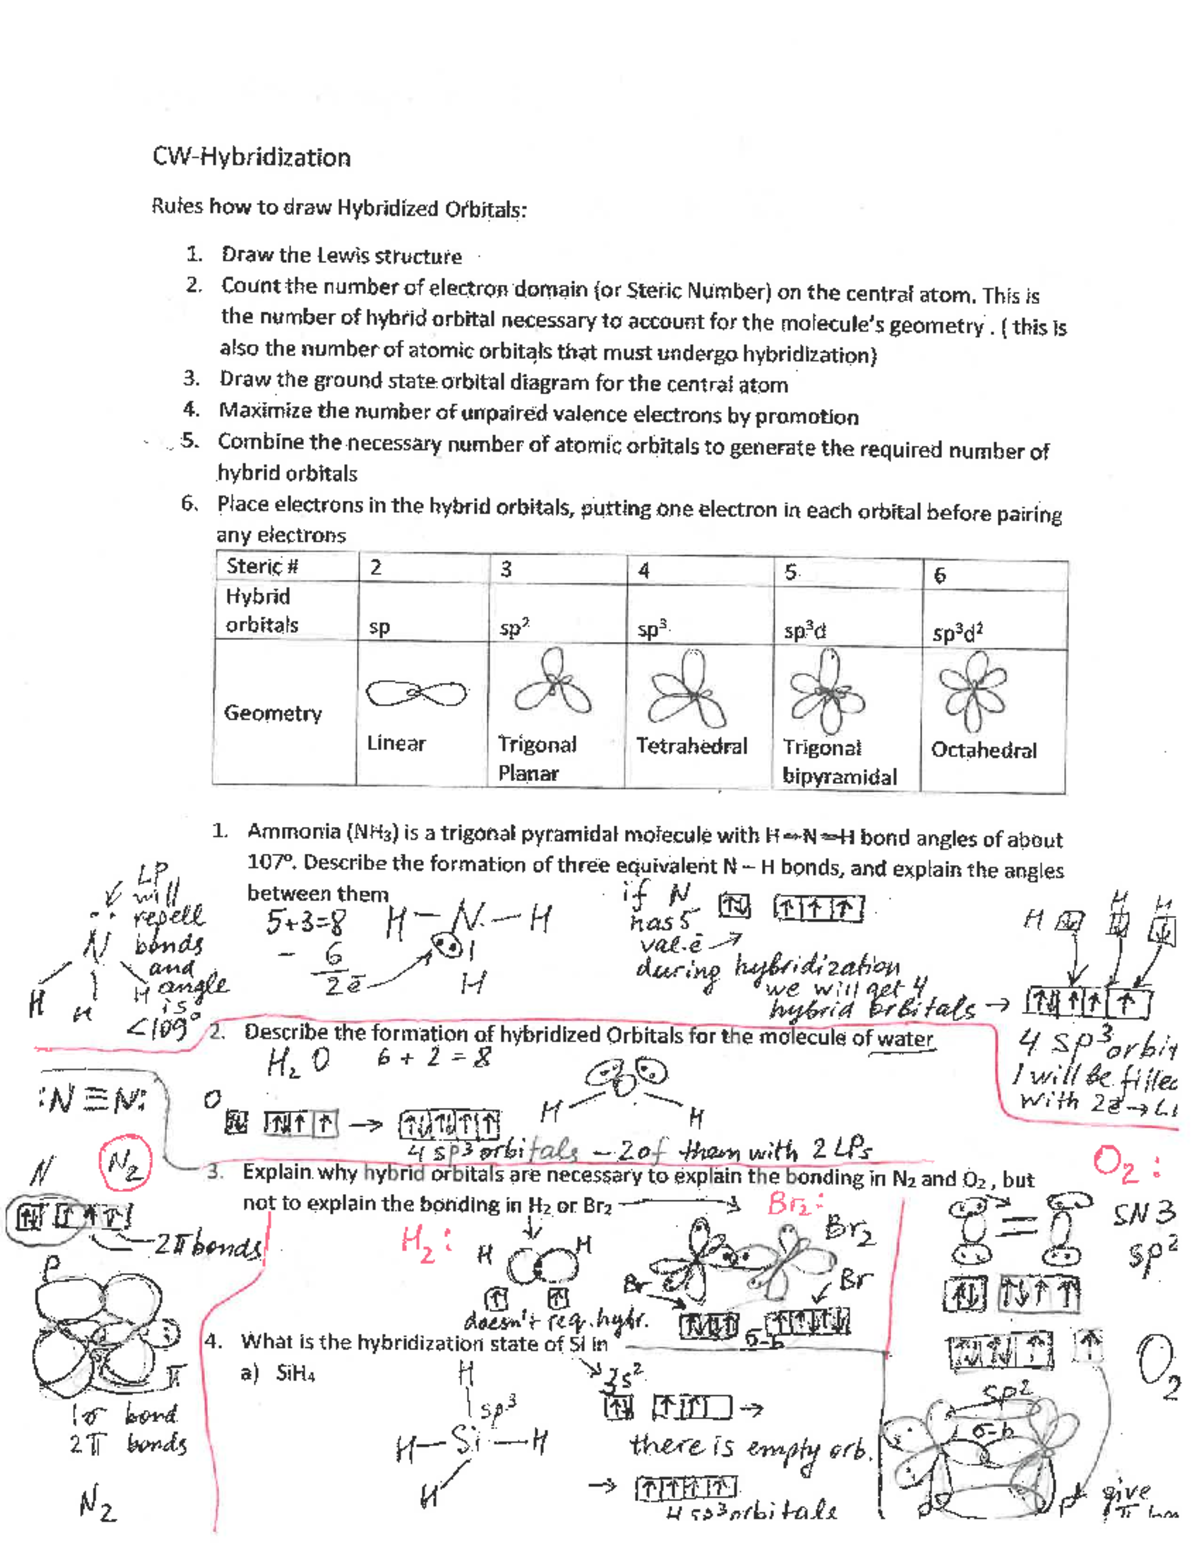 CW-Hybridization
Rules how to draw Hybridized Orbitals:
1. Draw the Lewis structure
2. Count the number of electron domain (or Steric Number) on the central atom. This is
the number of hybrid orbital necessary to account for the molecule's geometry . ( this is
also the number of atomic orbitals that must undergo hybridization)
3. Draw the ground state orbital diagram for the central atom
4. Maximize the number of unpaired valence electrons by promotion
5. Combine the necessary number of atomic orbitals to generate the required number of
hybrid orbitals
6. Place electrons in the hybrid orbitals, putting one electron in each orbital before pairing
any electrons
Steric # 2 3 4 5 6
Hybrid
orbitals sp sp² sp³ sp³d sp³d²
Geometry
Linear Trigonal Tetrahedral Trigonal Octahedral
Planar bipyramidal
1. Ammonia (NH₃) is a trigonal pyramidal molecule with H–N–H bond angles of about
107º. Describe the formation of three equivalent N – H bonds, and explain the angles
between them
LP
will
repell
bonds
and
angle
is
<109°
N
H H H
5+3=8
- 6
2ē
H–N–H
H
if N
has 5
val.ē →
during hybridization
we will get 4
hybrid orbitals →
H H H
4 sp³ orbit
1 will be filled
with 2ē →
2. Describe the formation of hybridized Orbitals for the molecule of water
H₂O 6 + 2 = 8
H H
O
4 sp³ orbitals – 2 of them with 2 LPs
:N≡N:
N N₂
2π bonds
P
π
1σ bond
2π bonds
N₂
3. Explain why hybrid orbitals are necessary to explain the bonding in N₂ and O₂ , but
not to explain the bonding in H₂ or Br₂
H₂:
H H
doesn't req. hybr.
Br₂:
Br₂
Br Br
σ-b
O₂:
SN 3
sp²
sp²
O₂
σ-b
p p
give
4. What is the hybridization state of Si in
a) SiH₄
H
sp³
H–Si–H
H
3s²
there is empty orb.
→
4 sp³ orbitals